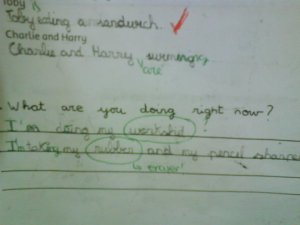 Toby is
Toby eating a sandwich.
Charlie and Harry
Charlie and Harry swimming,
are
What are you doing right now?
I'm doing my
I'm taking my rubber and my pencil sharpe
eraser